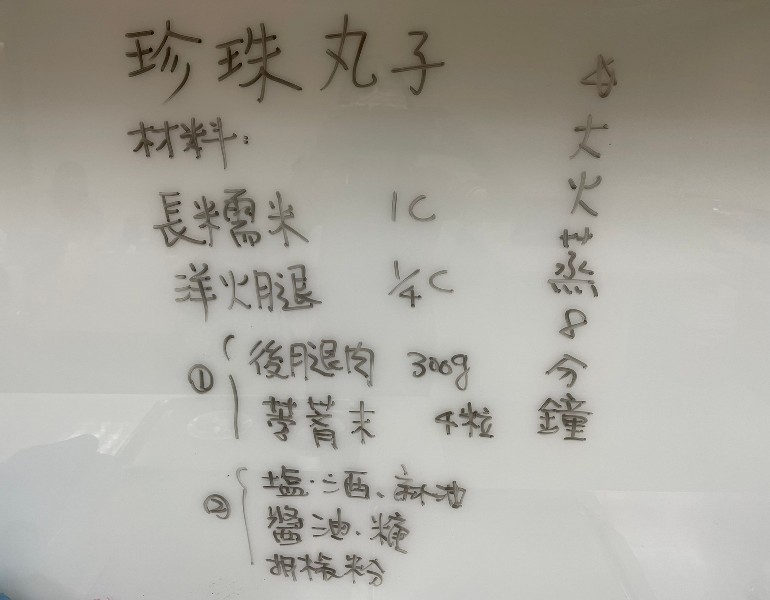 珍珠丸子
材料:
長糯米 1C
洋火腿 1/4C
① 後腿肉 300g
荸薺末 4粒
② 塩.酒、麻油
醬油.糖
胡椒粉
大火蒸8分鐘